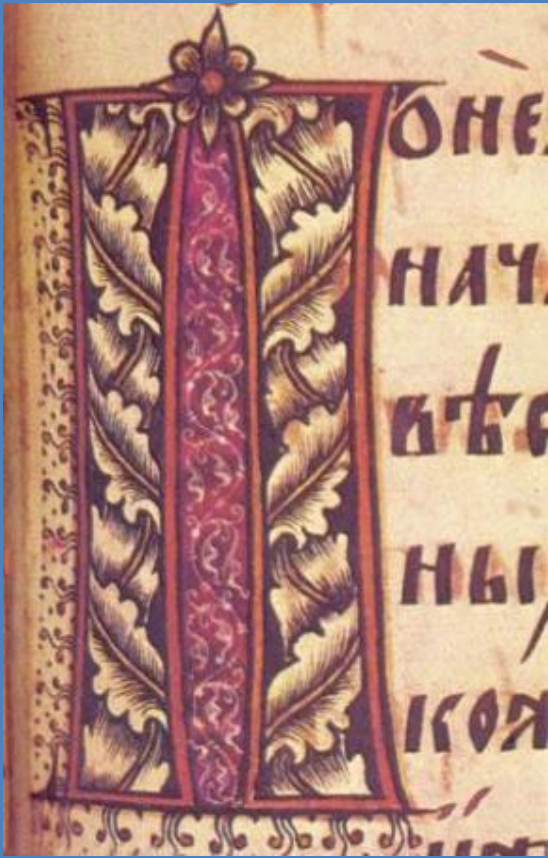 Поне
нач
вѣс
ны
коꙗ